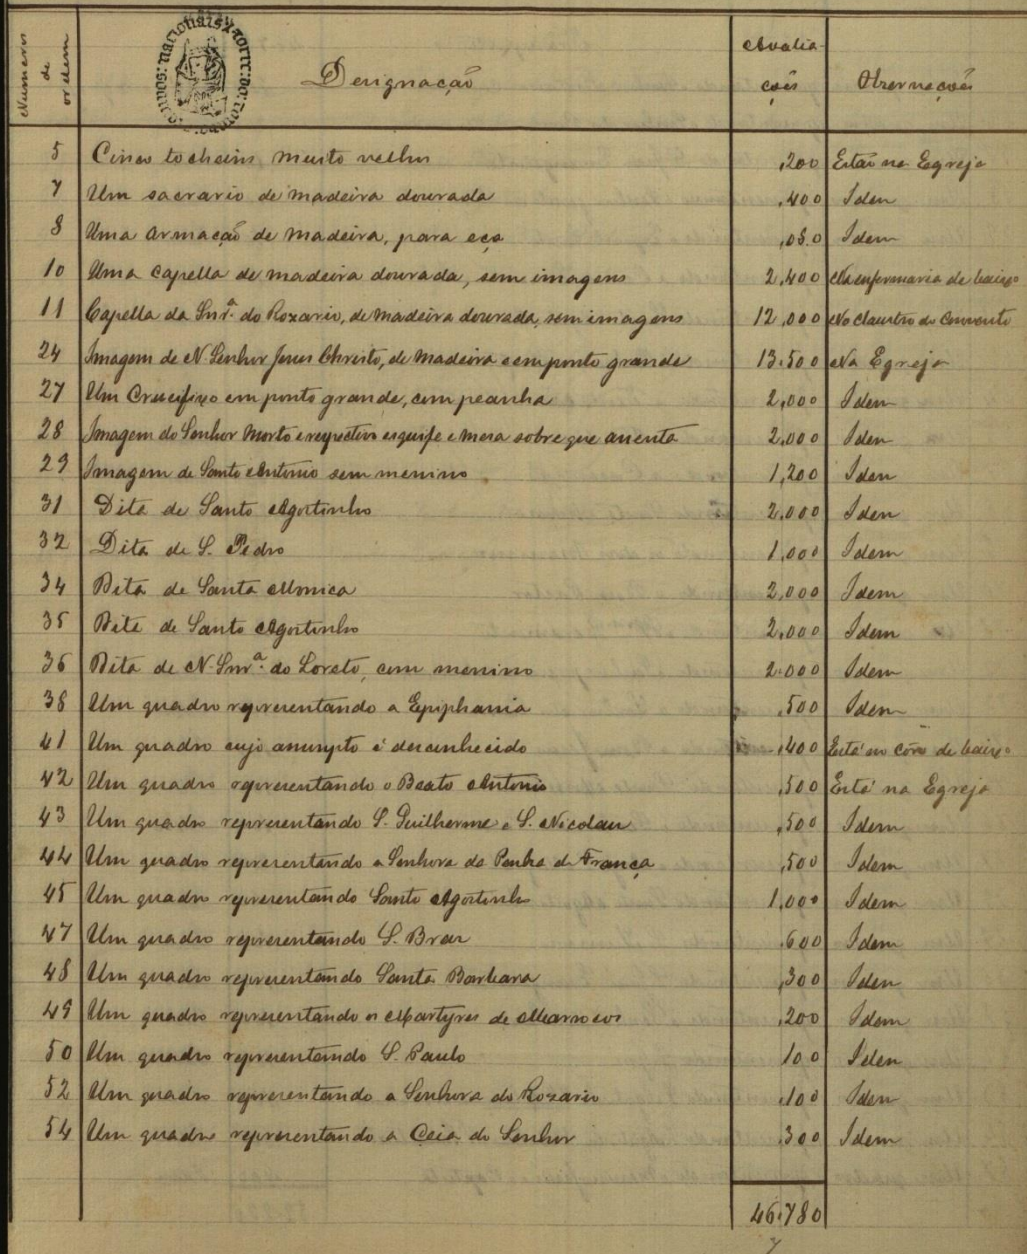 Numeros de ordem | Designação | Avaliações | Observações
5 Cinco tocheiros muito velhos ,200 Estão na Egreja
7 Um sacrario de madeira dourada ,400 Idem
8 Uma armação de madeira, para eça ,080 Idem
10 Uma capella de madeira dourada, sem imagens 2,400 Na enfermaria de baixo
11 Capella da Snrª. do Rozario, de madeira dourada, sem imagens 12,000 No claustro do Convento
24 Imagem de N. Senhor Jesus Christo, de madeira e em ponto grande 13.500 Na Egreja
27 Um Crucifixo em ponto grande, com peanha 2,000 Idem
28 Imagem do Senhor Morto e respectivo esquife e mesa sobre que assenta 2,000 Idem
29 Imagem de Santo Antonio sem menino 1,200 Idem
31 Dita de Santo Agostinho 2,000 Idem
32 Dita de S. Pedro 1,000 Idem
34 Dita de Santa Monica 2,000 Idem
35 Dita de Santo Agostinho 2,000 Idem
36 Dita de N. Snrª. do Loreto, com menino 2.000 Idem
38 Um quadro representando a Epiphania ,500 Idem
41 Um quadro cujo assumpto é desconhecido ,400 Está no côro de baixo
42 Um quadro representando o Beato Antonio ,500 Está na Egreja
43 Um quadro representando S. Guilherme e S. Nicolau ,500 Idem
44 Um quadro representando a Senhora da Penha de França ,500 Idem
45 Um quadro representando Santo Agostinho 1,000 Idem
47 Um quadro representando S. Braz ,600 Idem
48 Um quadro representando Santa Barbara ,300 Idem
49 Um quadro representando os Martyres de Marrocos ,200 Idem
50 Um quadro representando S. Paulo 100 Idem
52 Um quadro representando a Senhora do Rozario ,100 Idem
54 Um quadro representando a Ceia do Senhor ,300 Idem
46,780